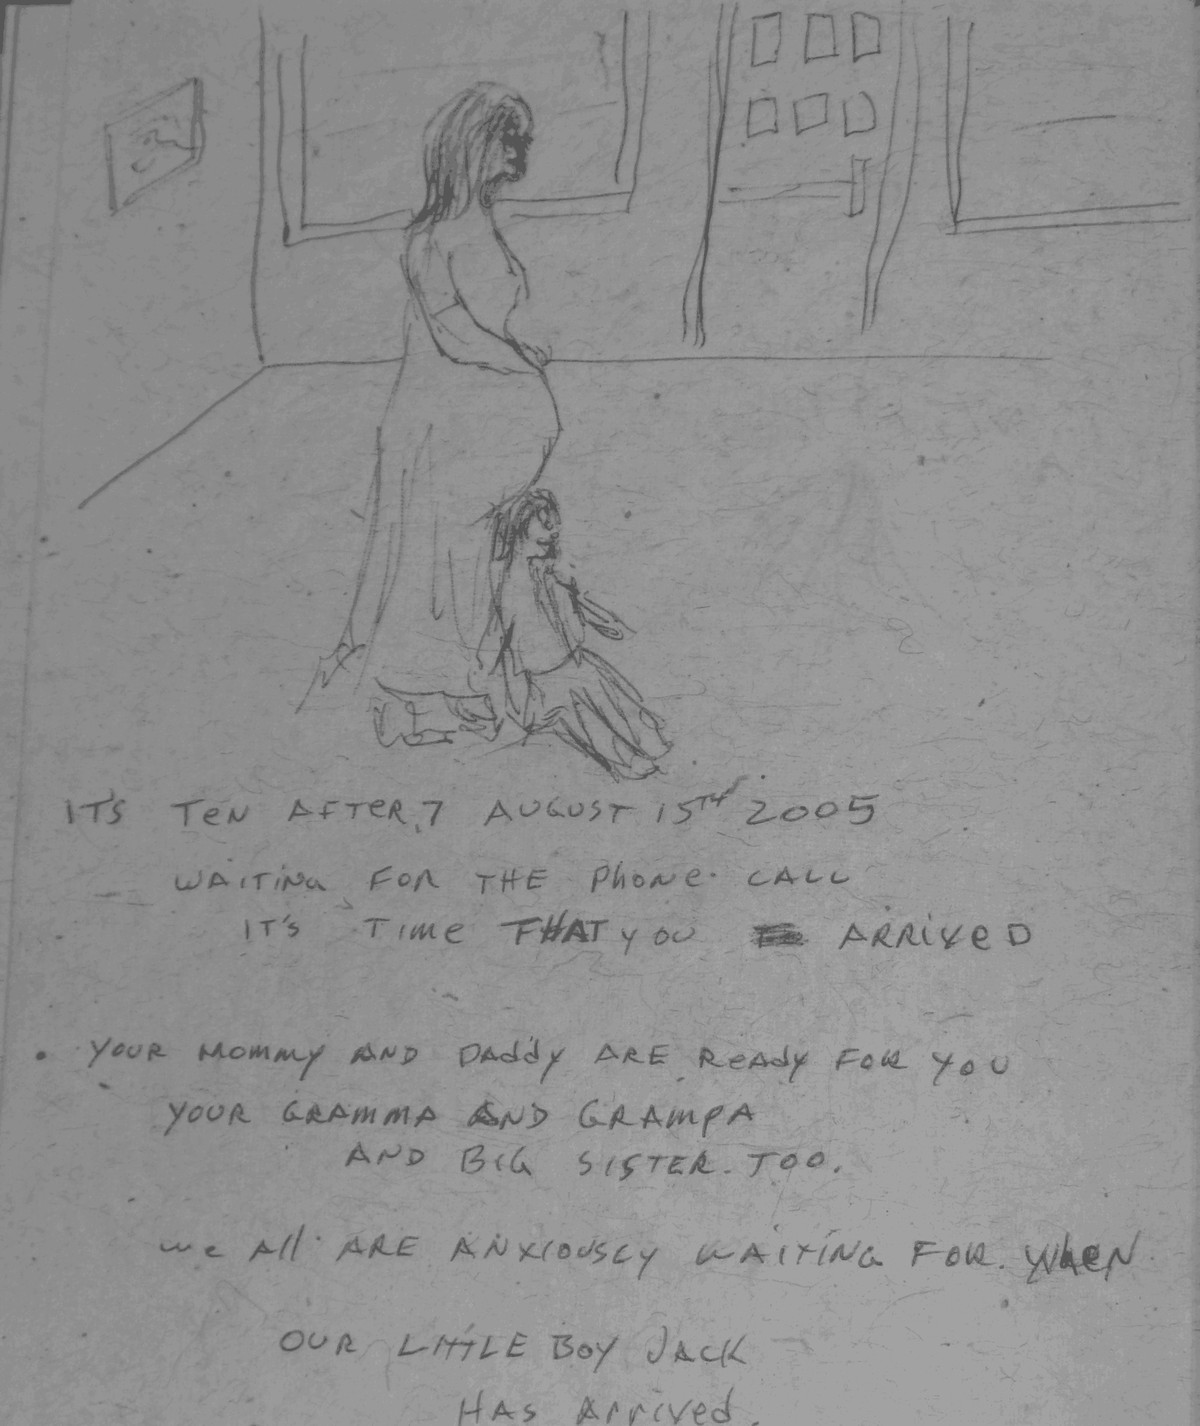 IT'S TeN AFTeR 7 AUGUST 15TH 2005
WAITING FOR THE PHONe CALL
IT'S TIMe THAT YOU ARRIVeD
YOUR MOMMY AND DADDY ARE ReADY FOR YOU
YOUR GRAMMA AND GRAMPA
AND BIG SISTER TOO.
We All ARE ANXIOUSLY WAITING FOR WheN
OUR LITTLE BOY JACK
HAS Arrived.